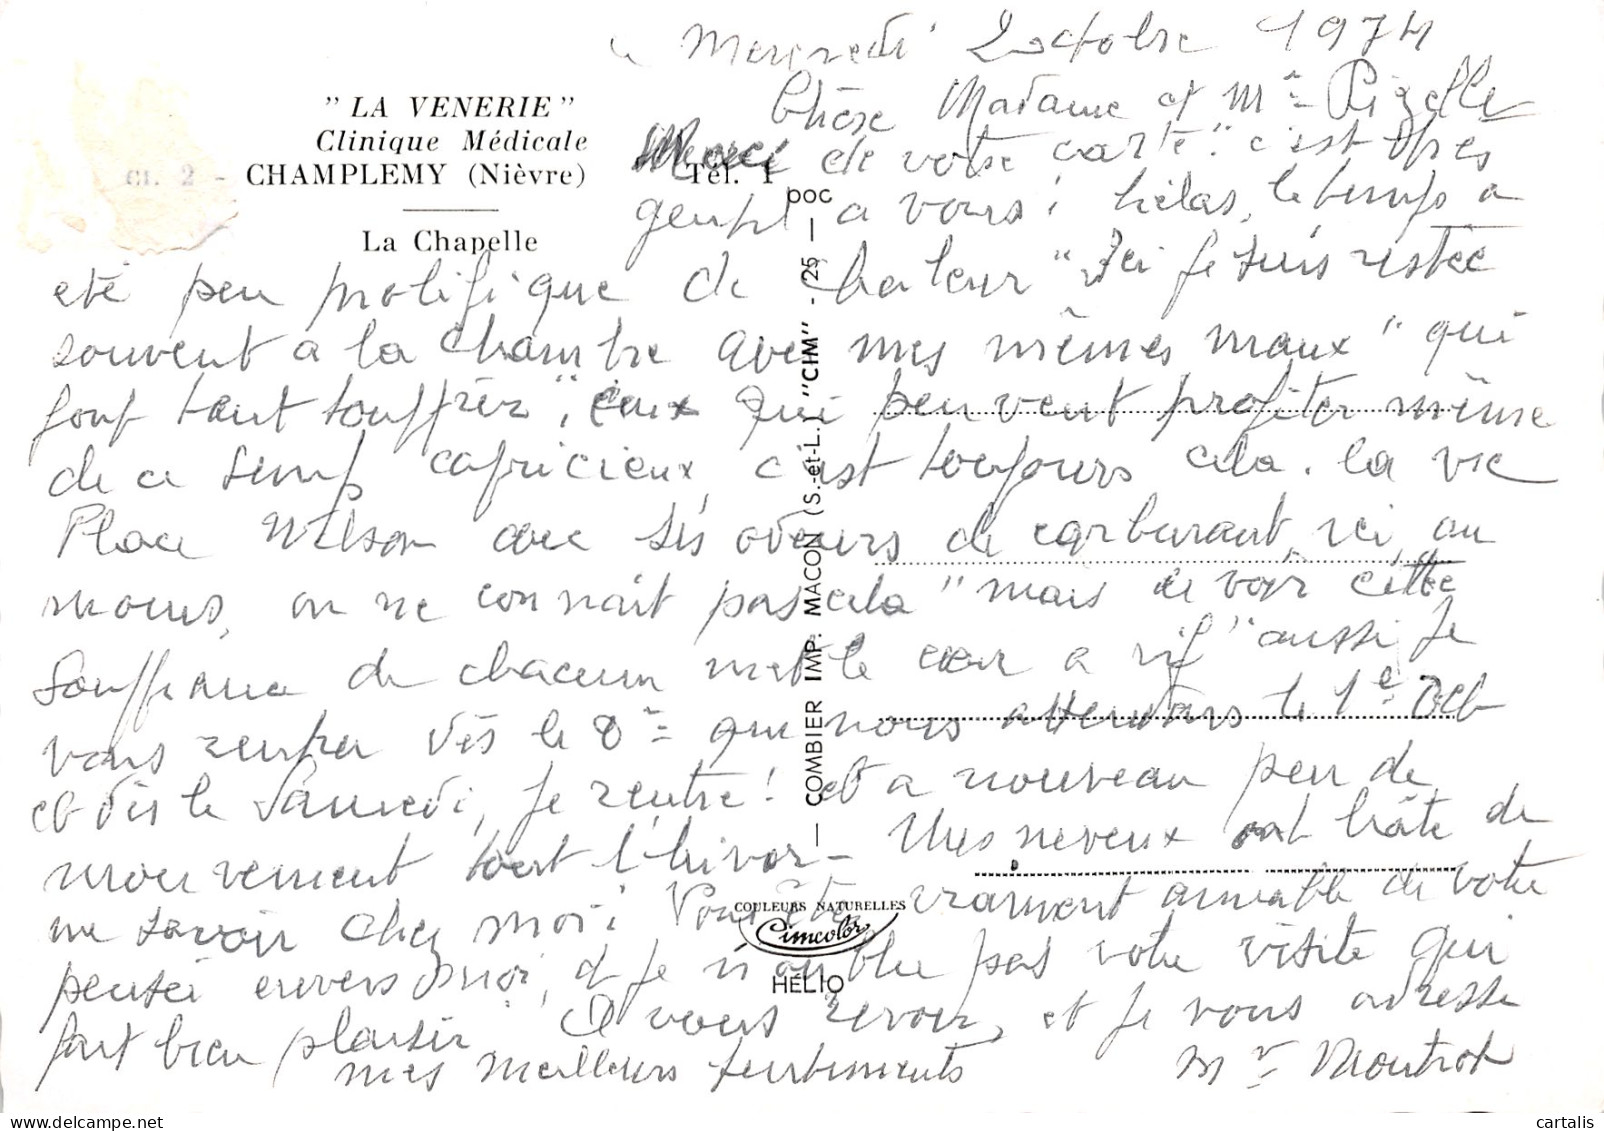 Mercredi 2 octobre 1974
" LA VENERIE "
Clinique Médicale
CI. 2 - CHAMPLEMY (Nièvre) Tél. 1
La Chapelle
Chère Madame et Mme Pizelle
Merci de votre carte" c'est très
gentil a vous ! hélas, le temps a
été peu prolifique de chaleur" Ici je suis restée
souvent a la chambre avec mes mêmes maux "qui
font tant souffrir", ceux qui peuvent profiter même
de ce temps capricieux, c'est toujours cela. la vie
Place Wilson avec ses odeurs de carburant, ici, au
moins, on ne connait pas cela" mais de voir cette
souffrance de chacun met le cœur a vif" aussi je
vais rentrer dès le 8e = que nous attendons le 1e Oct
et dès le Samedi, je rentre ! et a nouveau peu de
mouvement tout l'hiver - Mes neveux ont hâte de
me savoir chez moi ! Vous êtes vraiment aimable de votre
pensée envers moi, et je n'oublie pas votre visite qui
fait bien plaisir" A vous revoir, et je vous adresse
mes meilleurs sentiments Mr Montrot
poc
COMBIER IMP. MACON (S.-et-L.) "CIM" - 25 -
COULEURS NATURELLES
Cimcolor
HÉLIO
cartalis